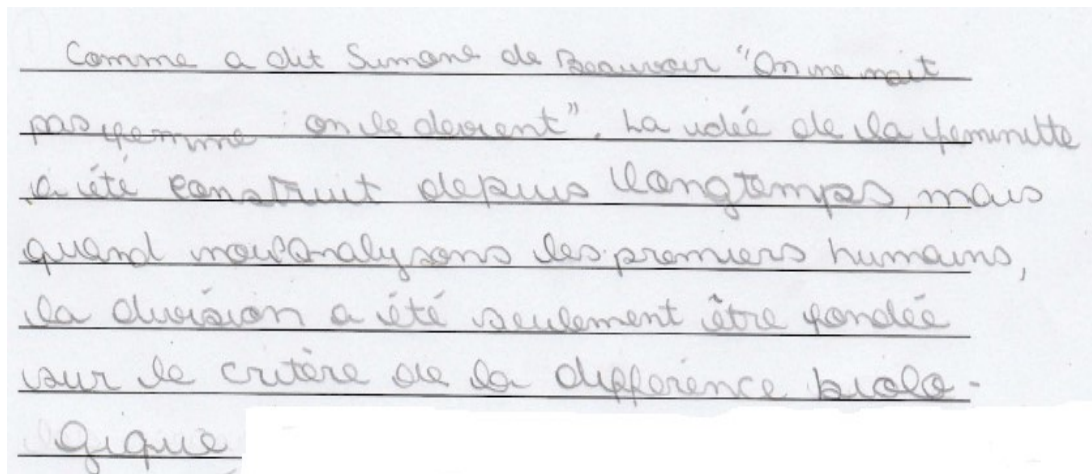 Comme a dit Simone de Beauvoir "On ne nait
pas femme on le devient". La idée de la feminitte
a été construit depuis longtemps, mais
quand nous analysons les premiers humains,
la division a été seulement être fondée
sur le critère de la différence biolo-
gique